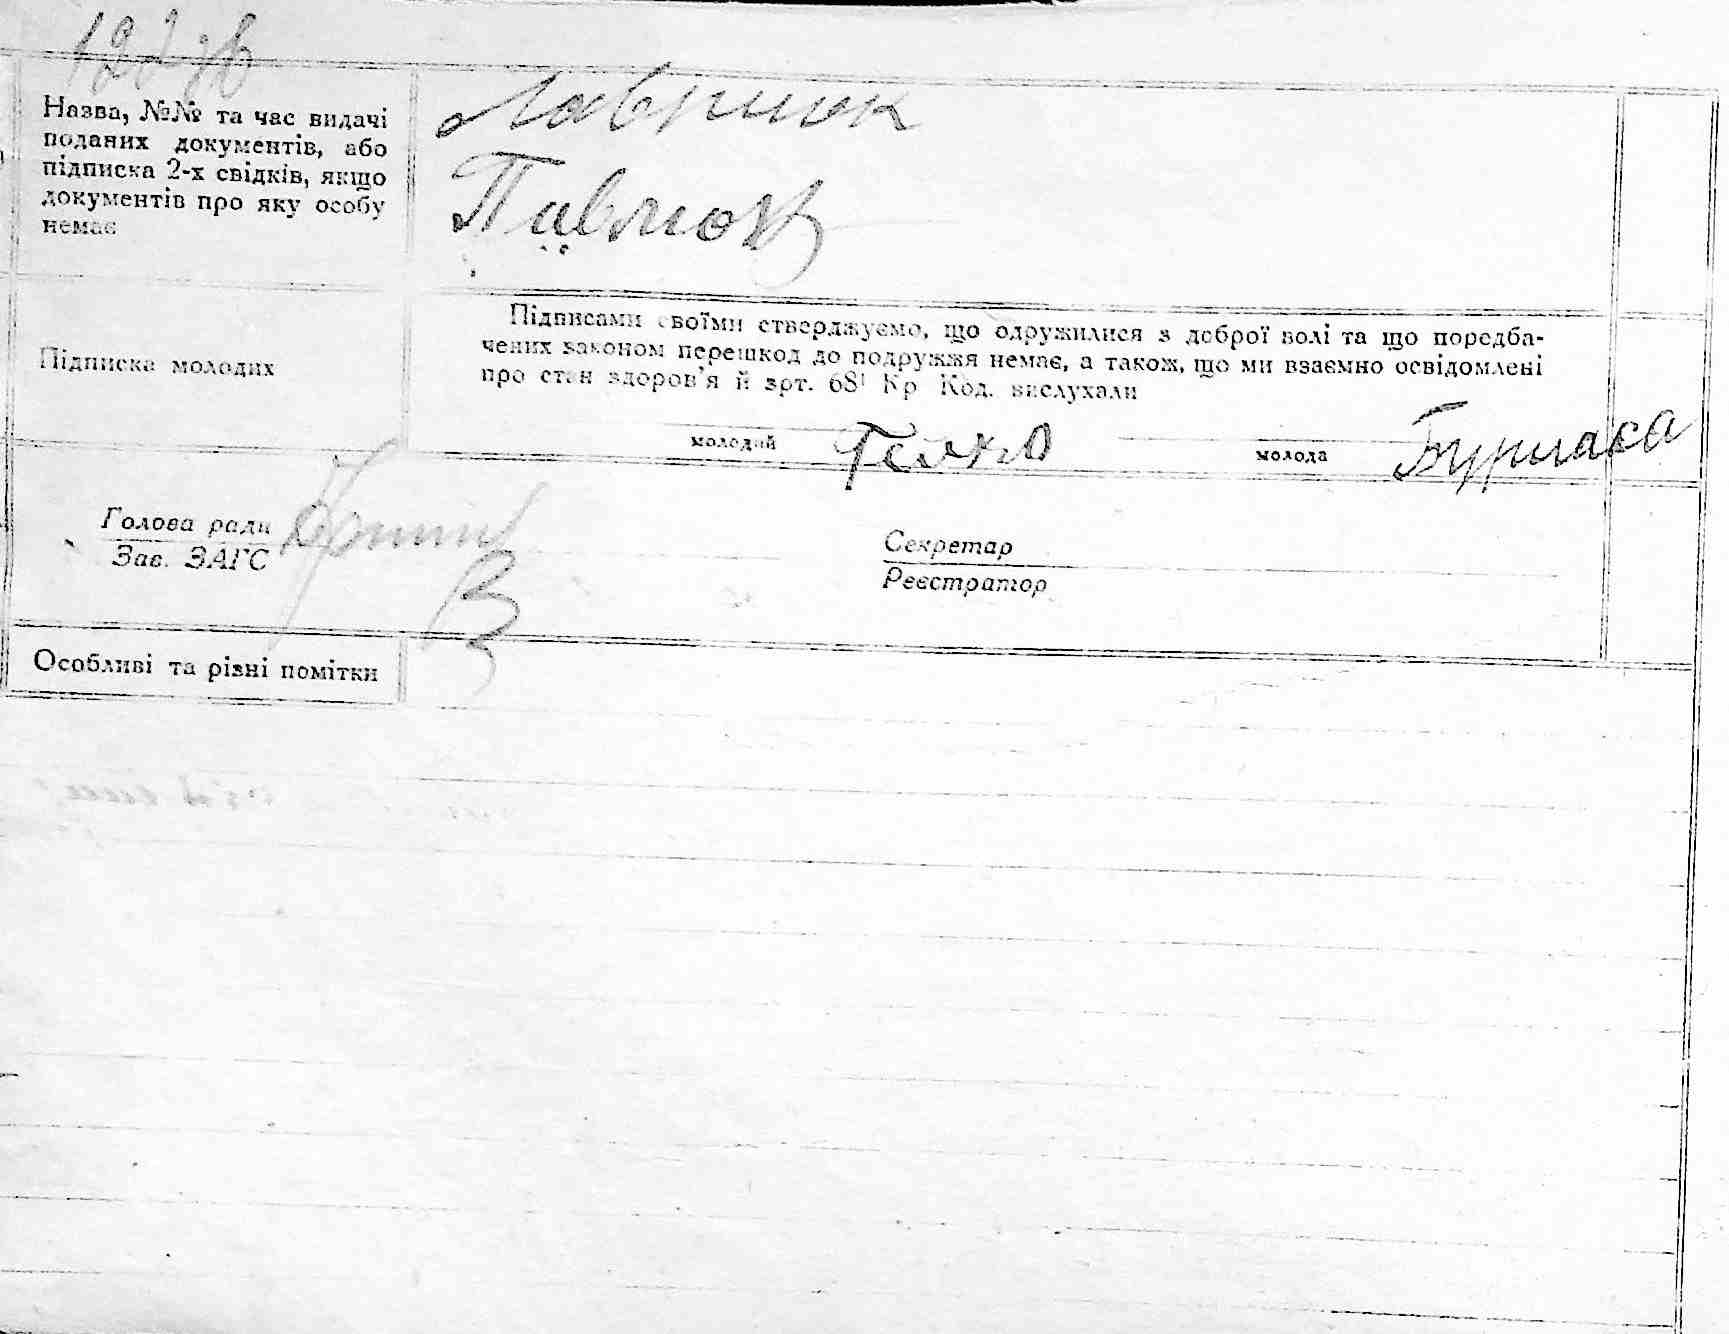 Назва, №№ та час видачі
поданих документів, або
підписка 2-х свідків, якщо
документів про яку особу
немає
Лавринюк
Павлюк
Підписка молодих
Підписами своїми стверджуємо, що одружилися з доброї волі та що поредба-
чених законом перешкод до подружжя немає, а також, що ми взаємно освідомлені
про стан здоров'я й арт. 68¹ Кр Код. вислухали
молодий
молода Бурлака
Голова ради
Зав. ЗАГС
Секретар
Реєстратор
Особливі та різні помітки